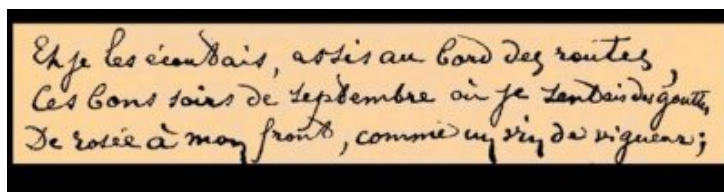 Et je les écoutais, assis au bord des routes,
Ces bons soirs de septembre où je sentais des gouttes
De rosée à mon front, comme un vin de vigueur;